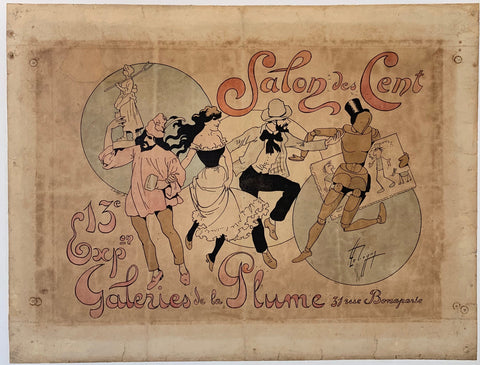 Salon des Cent
13e
Expon
Galeries de la Plume 31 rue Bonaparte